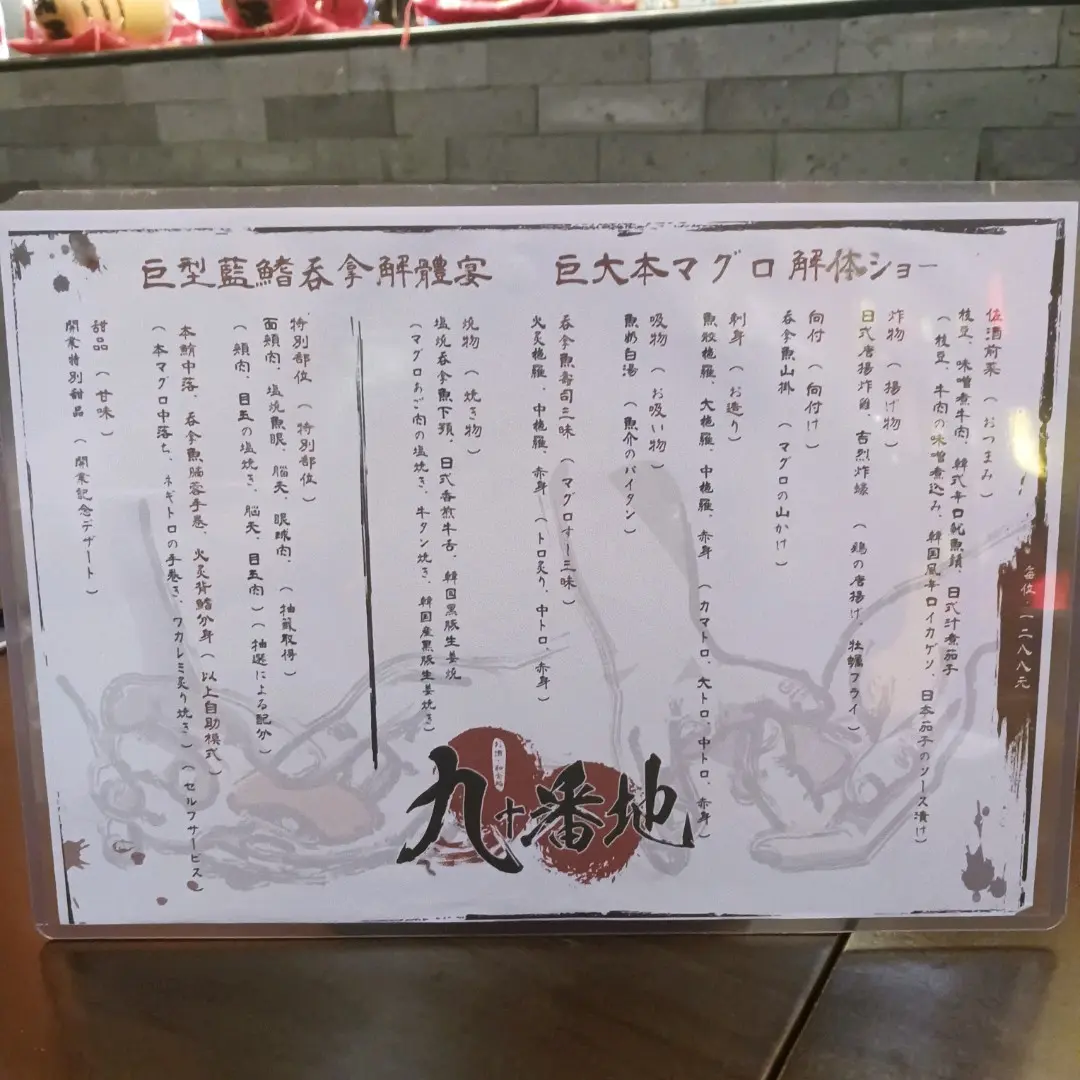 巨型藍鰭吞拿解體宴
巨大本マグロ解体ショー
每位:一二八八元
佐酒前菜 (おつまみ)
枝豆、味噌煮牛肉、韓式辛口魷魚鬚、日式汁煮茄子
(枝豆、牛肉の味噌煮込み、韓国風辛口イカゲソ、日本茄子のソース漬け)
炸物 (揚げ物)
日式唐揚炸雞、吉烈炸蠔 (鶏の唐揚げ、牡蠣フライ)
向付 (向付け)
吞拿魚山掛 (マグロの山かけ)
刺身 (お造り)
魚鮫拖羅、大拖羅、中拖羅、赤身 (カマトロ、大トロ、中トロ、赤身)
吸物 (お吸い物)
魚奶白湯 (魚介のパイタン)
吞拿魚壽司三味 (マグロすし三味)
火炙拖羅、中拖羅、赤身 (トロ炙り、中トロ、赤身)
燒物 (焼き物)
塩燒吞拿魚下顎、日式香煎牛舌、韓国黒豚生姜燒
(マグロあご肉の塩焼き、牛タン焼き、韓国産黒豚生姜焼き)
特別部位 (特別部位)
面頬肉、塩燒魚眼、腦天、眼球肉、(抽籤取得)
(頬肉、目玉の塩焼き、脳天、目玉肉)(抽選による配分)
本鮪中落、吞拿魚腩蓉手卷、火炙背鰭分身(以上自助模式)
(本マグロ中落ち、ネギトロの手巻き、ワカレミ炙り焼き)(セルフサービス)
甜品 (甘味)
開業特別甜品 (開業記念デザート)
九十番地